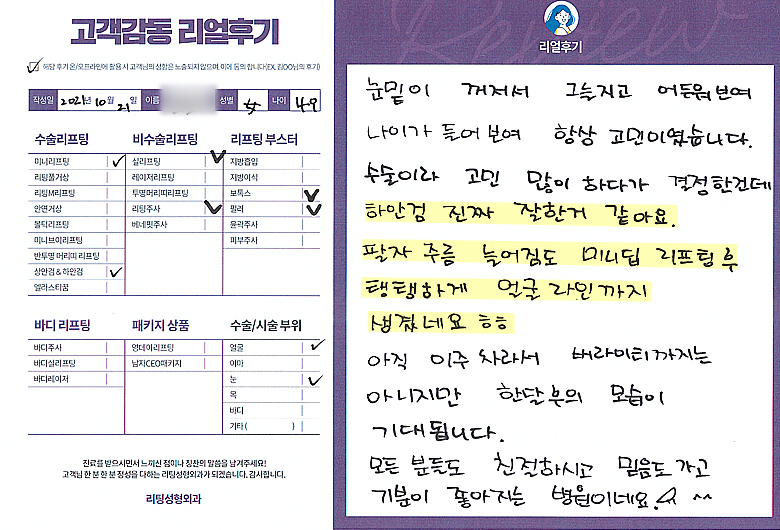 고객감동 리얼후기
해당 후기 온/오프라인에 활용 시 고객님의 성함은 노출되지 않으며, 이에 동의 합니다(EX. 김OO님의 후기)
작성일 2021년 10월 21일 이름 성별 女 나이 49
수술리프팅
미니리프팅
리팅풀거상
리팅M리프팅
안면거상
볼턱리프팅
미니브이리프팅
반투명 머리띠 리프팅
상안검 & 하안검
엘라스티꿈
비수술리프팅
실리프팅
레이저리프팅
투명머리띠리프팅
리팅주사
베네핏주사
리프팅 부스터
지방흡입
지방이식
보톡스
필러
윤곽주사
피부주사
바디 리프팅
바디주사
바디실리프팅
바디레이저
패키지 상품
영데이리프팅
남자CEO패키지
수술/시술 부위
얼굴
이마
눈
목
바디
기타 ( )
진료를 받으시면서 느끼신 점이나 칭찬의 말씀을 남겨주세요!
고객님 한 분 한 분 정성을 다하는 리팅성형외과가 되겠습니다. 감사합니다.
리팅성형외과
Review
리얼후기
눈밑이 꺼져서 그늘지고 어두워보여
나이가 들어보여 항상 고민이였습니다.
수술이라 고민 많이 하다가 결정한건데
하안검 진짜 잘한거 같아요.
팔자 주름 늘어짐도 미니딥 리프팅 후
탱탱하게 얼굴 라인까지
생겼네요 ㅎㅎ
아직 이주 차라서 버라이티까지는
아니지만 한달후의 모습이
기대됩니다.
모든 분들도 친절하시고 믿음도 가고
기분이 좋아지는 병원이네요. ^^